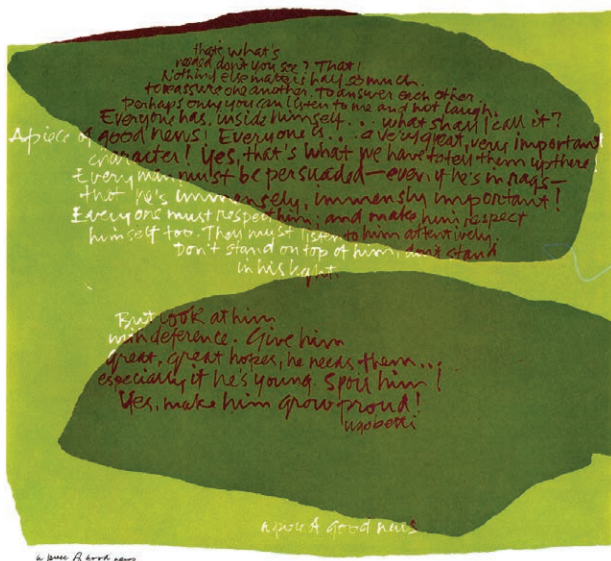 that's what's
needed don't you see? That!
Nothing else matters half so much.
to reassure one another. to answer each other.
perhaps only you can listen to me and not laugh.
Everyone has, inside himself... what shall I call it?
A piece of good news! Everyone is... a very great, very important
character! yes, that's what we have to tell them up there!
Every man must be persuaded—even if he's in rags—
that he's immensely, immensly important!
Everyone must respect him; and make him respect
himself too. They must listen to him attentively.
Don't stand on top of him, don't stand
in his light.
But look at him
with deference. Give him
great, great hopes, he needs them...
especially if he's young. Spoil him!
Yes, make him grow proud!
ugo betti
a piece of good news
a piece of good news